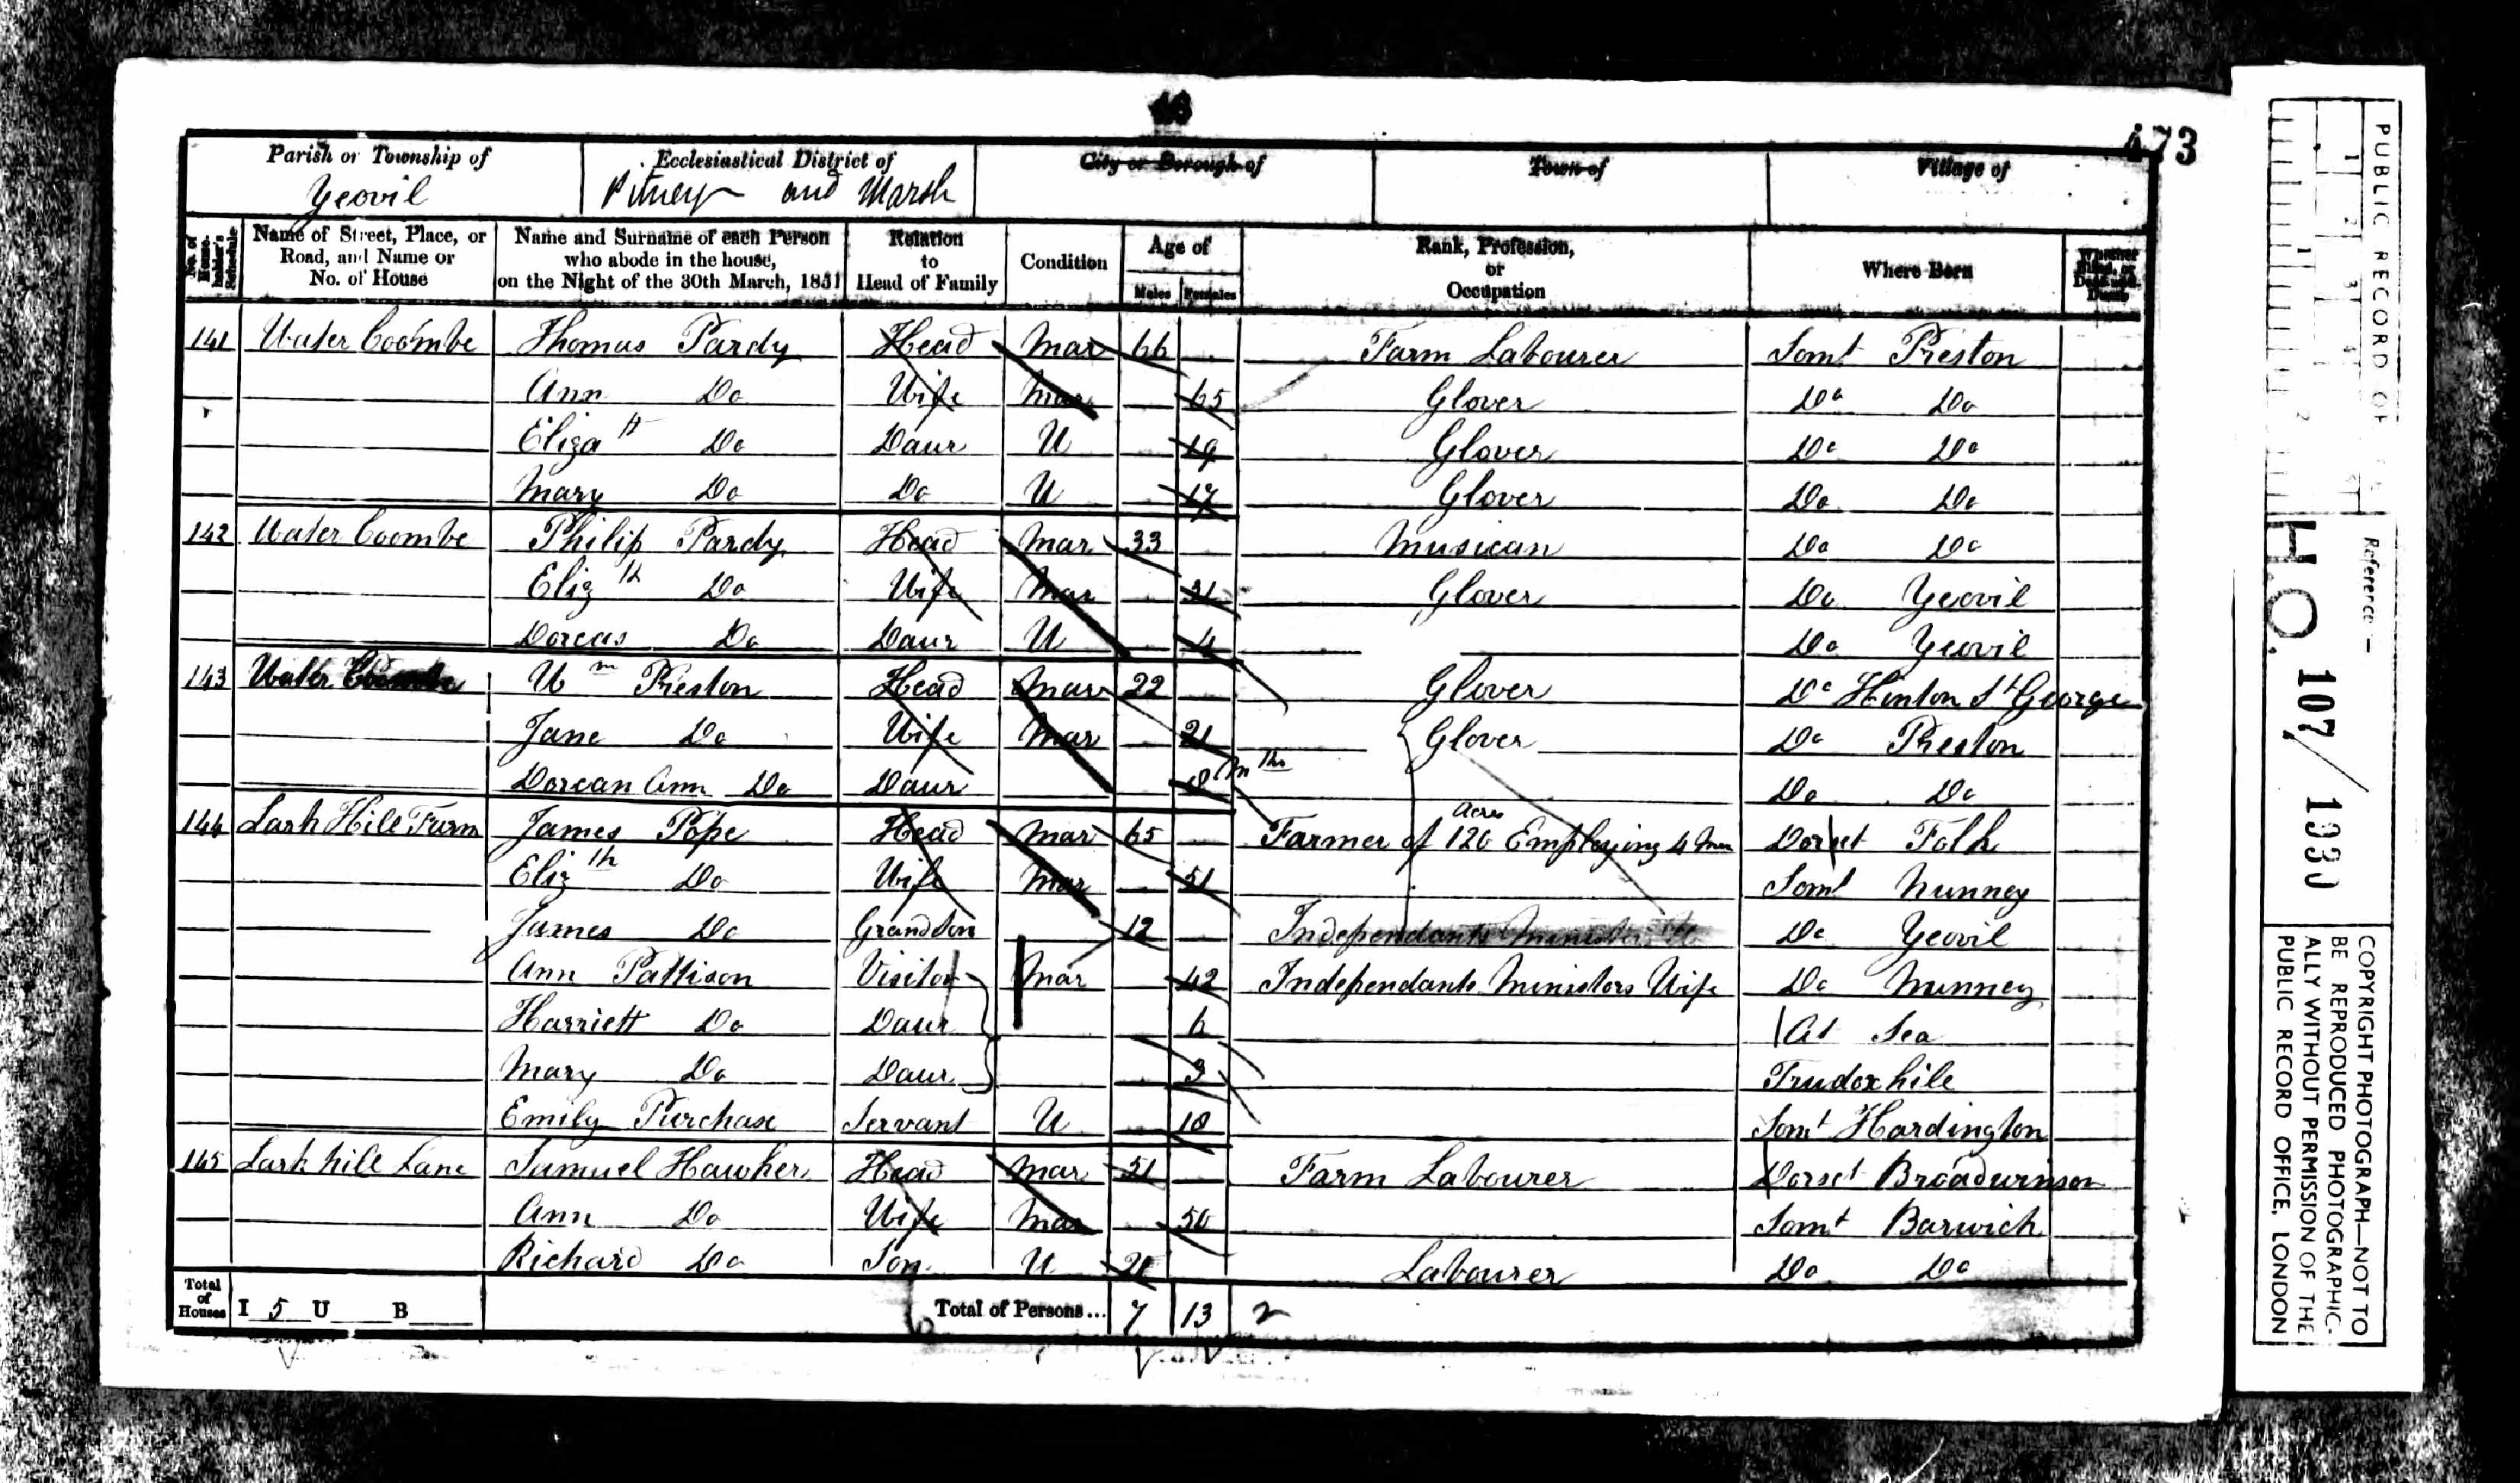 473
Parish or Township of
Yeovil
Ecclesiastical District of
Pitney and Marsh
City or Borough of
Town of
Village of
No. of House-holder's Schedule
Name of Street, Place, or Road, and Name or No. of House
Name and Surname of each Person who abode in the house, on the Night of the 30th March, 1851
Relation to Head of Family
Condition
Age of
Males Females
Rank, Profession, or Occupation
Where Born
Whether Blind, or Deaf-and-Dumb
141 Water Coombe Thomas Pardy Head Mar 66 Farm Labourer Somt Preston
Ann Do Wife Mar 65 Glover Do Do
Elizath Do Daur U 19 Glover Do Do
Mary Do Do U 17 Glover Do Do
142 Water Coombe Philip Pardy Head Mar 33 Musican Do Do
Elizth Do Wife Mar 31 Glover Do Yeovil
Dorcas Do Daur U 4 Do Yeovil
143 Water Coombe Wm Preston Head Mar 22 Glover Do Hinton St George
Jane Do Wife Mar 21 Glover Do Preston
Dorcan Ann Do Daur 8 Mths Do Do
144 Lark Hill Farm James Pope Head Mar 65 Farmer of 120 Acres Employing 4 Men Dorset Folk
Elizth Do Wife Mar 51 Somt Nunney
James Do Grandson 12 Independant Minister Do Yeovil
Ann Pattison Visitor Mar 42 Independants Ministers Wife Do Nunney
Harriett Do Daur 6 At Sea
Mary Do Daur 3 Trudoxhile
Emily Purchase Servant U 18 Somt Hardington
145 Lark hill Lane Samuel Hawker Head Mar 51 Farm Labourer Dorset Broadwinson
Ann Do Wife Mar 50 Somt Barwick
Richard Do Son U 21 Labourer Do Do
Total of Houses I 5 U B Total of Persons... 7 13 2
PUBLIC RECORD OF
1 2 3 4
1 2
Reference:-
H.O. 107/
COPYRIGHT PHOTOGRAPH—NOT TO
BE REPRODUCED PHOTOGRAPHIC-
ALLY WITHOUT PERMISSION OF THE
PUBLIC RECORD OFFICE, LONDON